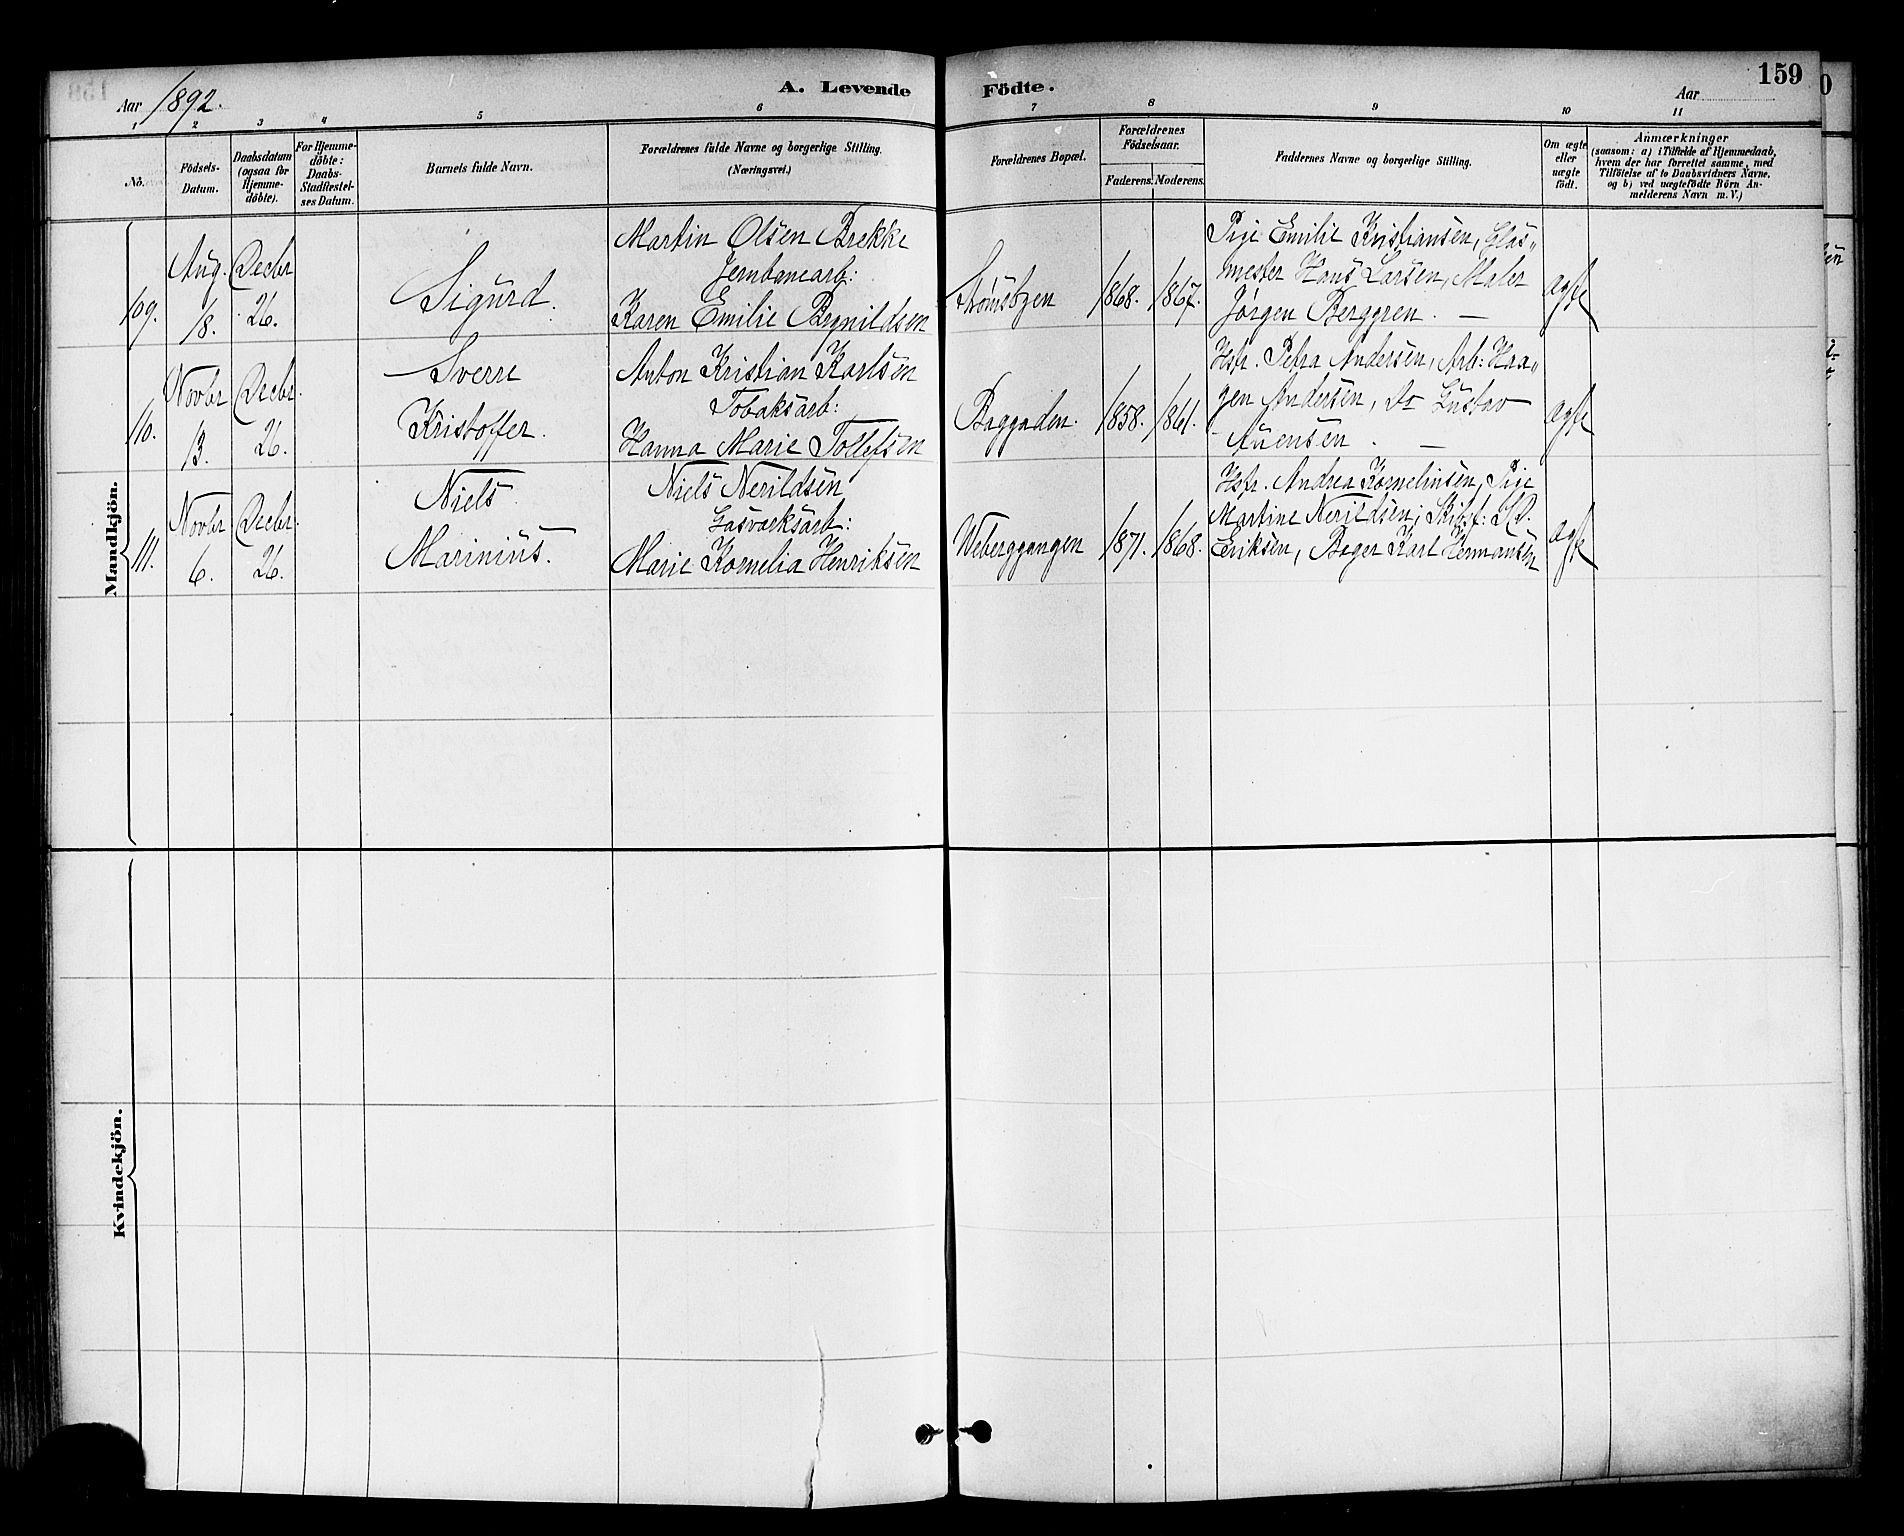 159
Aar 1892.
A. Levende Födte.
Aar
1 2 3 4 5 6 7 8 9 10 11
No.
Födsels-Datum.
Daabsdatum (ogsaa for Hjemme-döbte).
For Hjemme-döbte: Daabs-Stadfæstel-ses Datum.
Barnets fulde Navn.
Forældrenes fulde Navne og borgerlige Stilling. (Næringsvei.)
Forældrenes Bopæl.
Forældrenes Födselsaar.
Faderens. Moderens.
Faddernes Navne og borgerlige Stilling.
Om ægte eller uægte födt.
Anmærkninger
(saasom: a) i Tilfælde af Hjemmedaab,
hvem der har forrettet samme, med
Tilföielse af to Daabsvidners Navne,
og b) ved uægtefödte Börn An-
melderens Navn m. V.)
Mandkjön.
109.
Aug. 18.
Decbr 26.
Sigurd.
Martin Olsen Brekke
Jernbanearb:
Karen Emilie Brynildsen
1868. 1867.
Pige Emilie Kristiansen, Glas„
mester Hans Larsen, Maler
Jørgen Berggren. —
ægte
110.
Novbr 13.
Decbr. 26.
Sverre
Kristoffer.
Anton Kristian Karlsen
Tobaksarb:
Hanna Marie Tollefsen
Baggaden.
1858. 1861.
Hstr. Petra Andersen, Arb: Haa„
gen Andersen, Do Gustav
—
ægte
111.
Novbr 6.
Decbr. 26.
Niels
Marinius.
Niels Nerildsen
Gasværksarb:
Marie Kornelia Henriksen
Weberggangen
1871. 1868.
Hstr. Andrea Korneliusen, Pige
Martine Nerildsen, Skibst:
Eriksen, Bager Karl Hermansen
ægte
Kvindekjön.